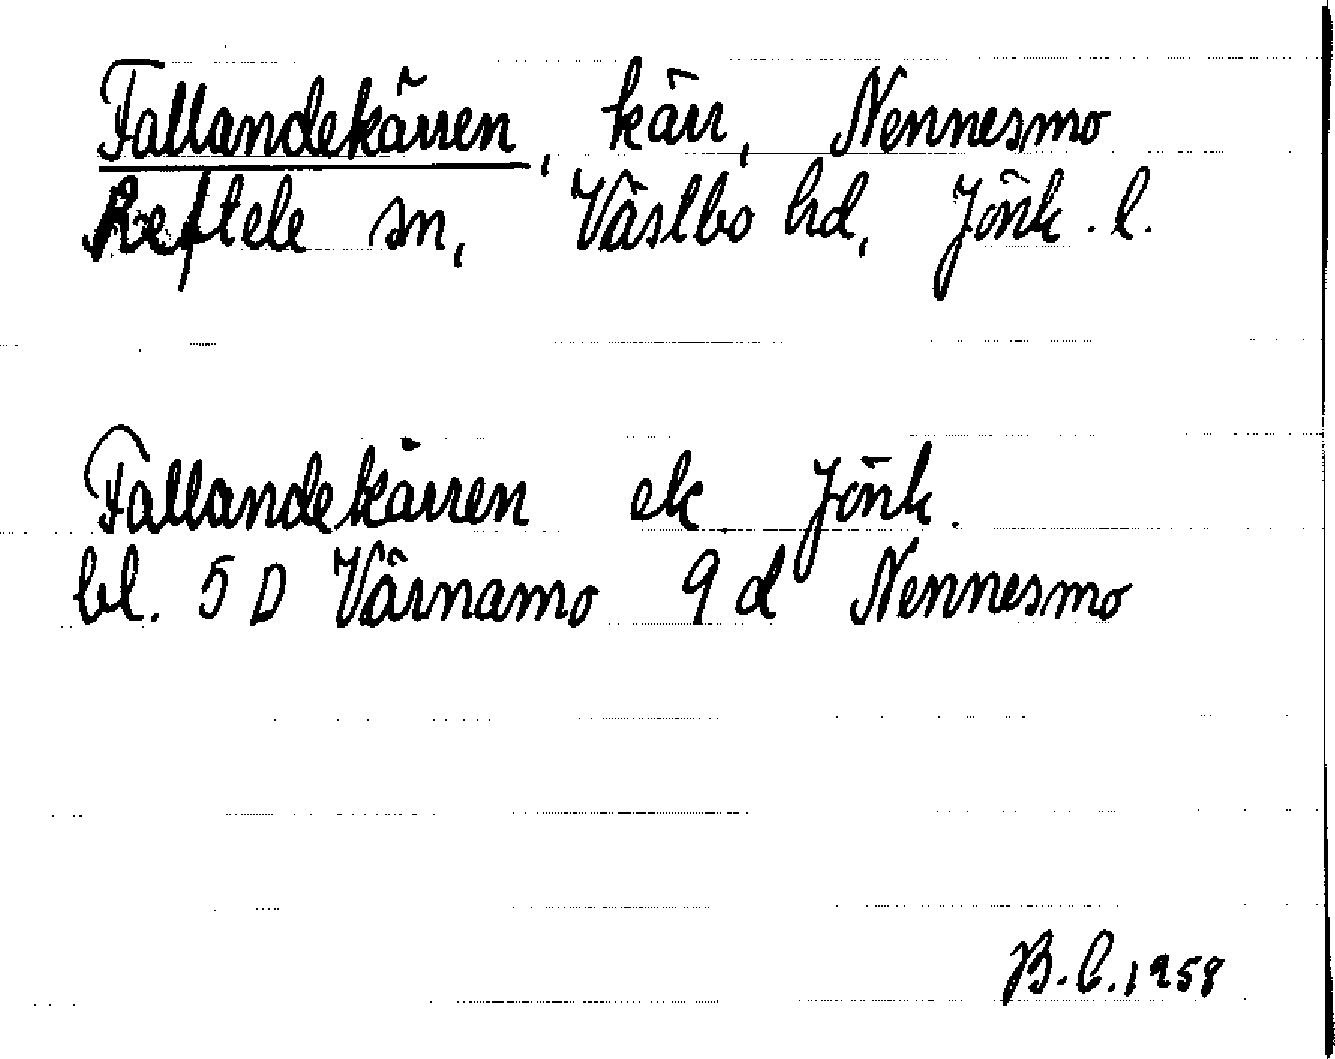 Fallandekärren, kärr, Nennesmo
Reftele sn, Västbo hd, Jönk. l.
Fallandekärren ek Jönk.
bl. 5 D Värnamo 9 d Nennesmo
B.C. 1958